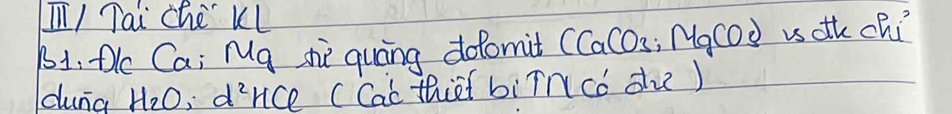 III/ Tái chế KL
B1. Đ/c Ca; Mg từ quặng đolomit (CaCO3; MgCO3) vs đk chỉ
dùng H2O; d² HCl (Các thiết bị TN có đủ)